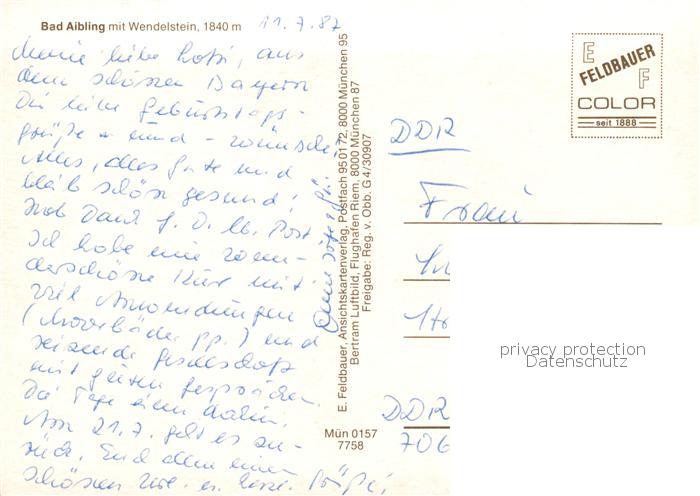 Bad Aibling mit Wendelstein, 1840 m
11.7.87
Meine liebe Lotti, aus
dem schönen Bayern
Dir liebe Geburtstags-
grüße und - wünsche
Alles, alles Gute und
bleib schön gesund!
Hab Dank f. D. lb. Post
Ich habe eine wun-
derschöne Kur mit
viel Anwendungen
(Moorbäder pp.) und
reizende Gesellschaft
mit guten Gesprächen.
Die Tage eilen dahin.
Am 21.7. geht es zu-
rück. Und dann einen
schönen
Grüße!
E. Feldbauer, Ansichtskartenverlag, Postfach 95 01 72, 8000 München 95
Bertram Luftbild, Flughafen Riem, 8000 München 87
Freigabe: Reg. v. Obb. G 4/30907
Mün 0157
7758
E FELDBAUER F
COLOR
seit 1888
DDR
Frau
DDR
706
privacy protection
Datenschutz